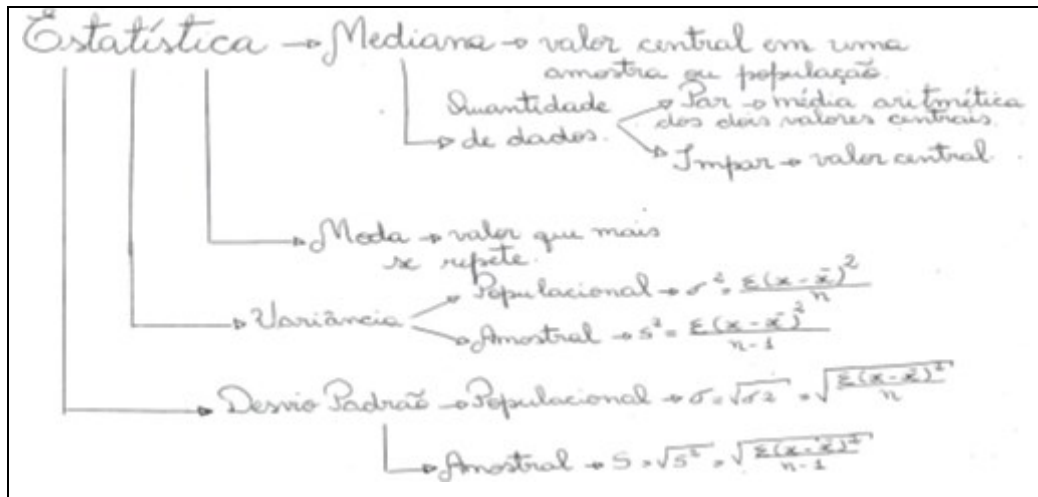 Estatística → Mediana → valor central em uma
amostra ou população.
Quantidade
de dados.
Par → média aritmética
dos dois valores centrais.
Impar → valor central.
Moda → valor que mais
se repete.
Variância
Populacional → σ² = Σ(x - x̄)² / n
Amostral → s² = Σ(x - x̄)² / n-1
Desvio Padrão → Populacional → σ = √σ2 = √Σ(x - x̄)² / n
Amostral → S = √S² = √Σ(x - x̄)² / n-1